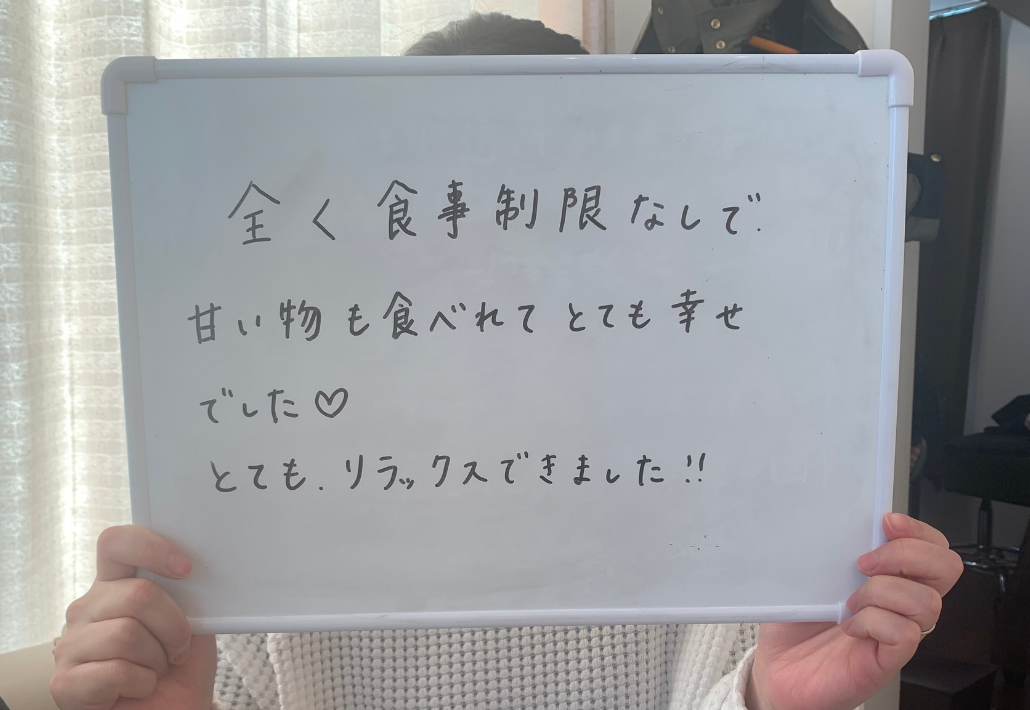 全く食事制限なしで.
甘い物も食べれてとても幸せ
でした♡
とても.リラックスできました!!